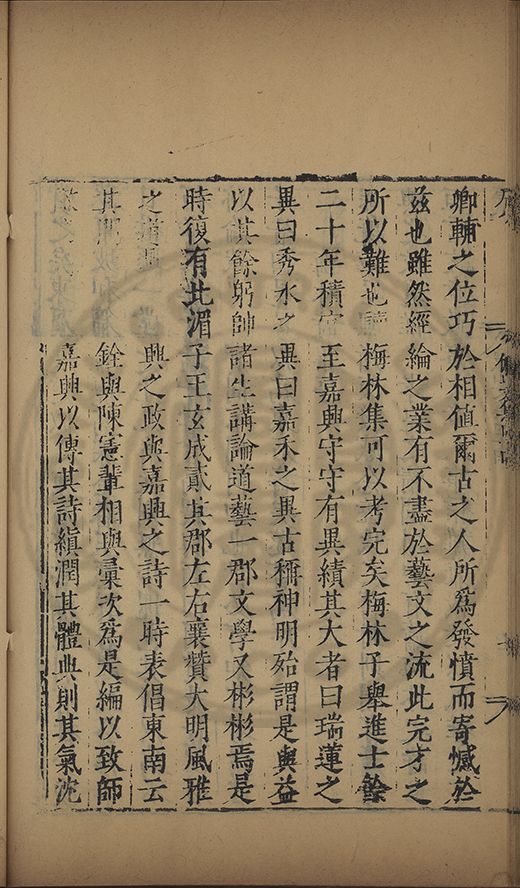 卿輔之位巧於相值爾古之人所爲發憤而寄憾於
茲也雖然經綸之業有不盡於藝文之流此完才之
所以難也讀梅林集可以考完矣梅林子舉進士餘
二十年積官至嘉興守守有異績其大者曰瑞蓮之
異曰秀水之異曰嘉禾之異古稱神明殆謂是與益
以其餘躬帥諸生講論道藝一郡文學又彬彬焉是
時復有北湄子王玄成貳其郡左右襄贊大明風雅
之道 興之政與嘉興之詩一時表倡東南云
其門 銓與陳憲輩相與彙次爲是編以致師
嘉興以傳其詩縝潤其體典則其氣沈